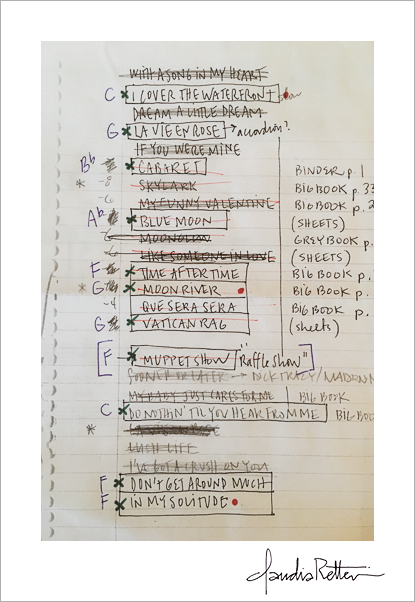 WITH A SONG IN MY HEART
C I COVER THE WATERFRONT
DREAM A LITTLE DREAM
G LA VIE EN ROSE → accordion?
IF YOU WERE MINE
Bb CABARET BINDER p. 1
* -8 SKYLARK BIG BOOK p. 33
-6 MY FUNNY VALENTINE BIG BOOK p. 2
Ab BLUE MOON (SHEETS)
MOONGLOW GREY BOOK p.
LIKE SOMEONE IN LOVE (SHEETS)
F TIME AFTER TIME BIG BOOK p.
* G MOON RIVER BIG BOOK p.
-4 QUE SERA SERA BIG BOOK p.
G VATICAN RAG (sheets)
[F MUPPET SHOW "Raffle Show"]
SOONER OR LATER → DICK TRACY/MADONN
MY BABY JUST CARES FOR ME BIG BOOK
C DO NOTHIN' TIL YOU HEAR FROM ME BIG BOO
*
LUSH LIFE
I'VE GOT A CRUSH ON YOU
F DON'T GET AROUND MUCH
F IN MY SOLITUDE
Claudia Retter